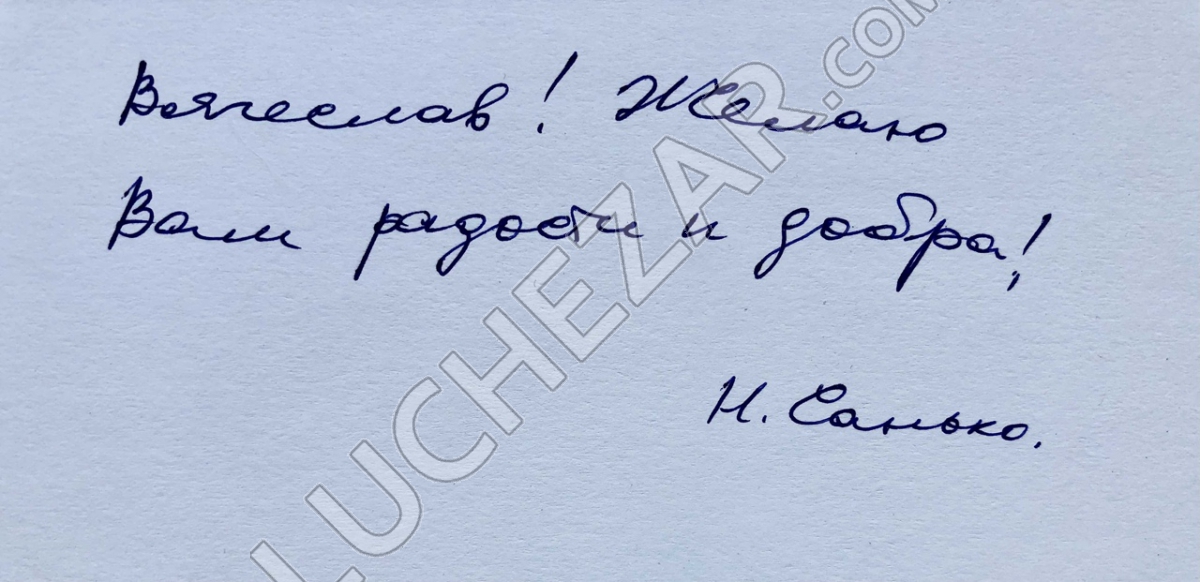 Вячеслав! Желаю
Вам радости и добра!
Н. Санько.
LUCHEZAR.COM